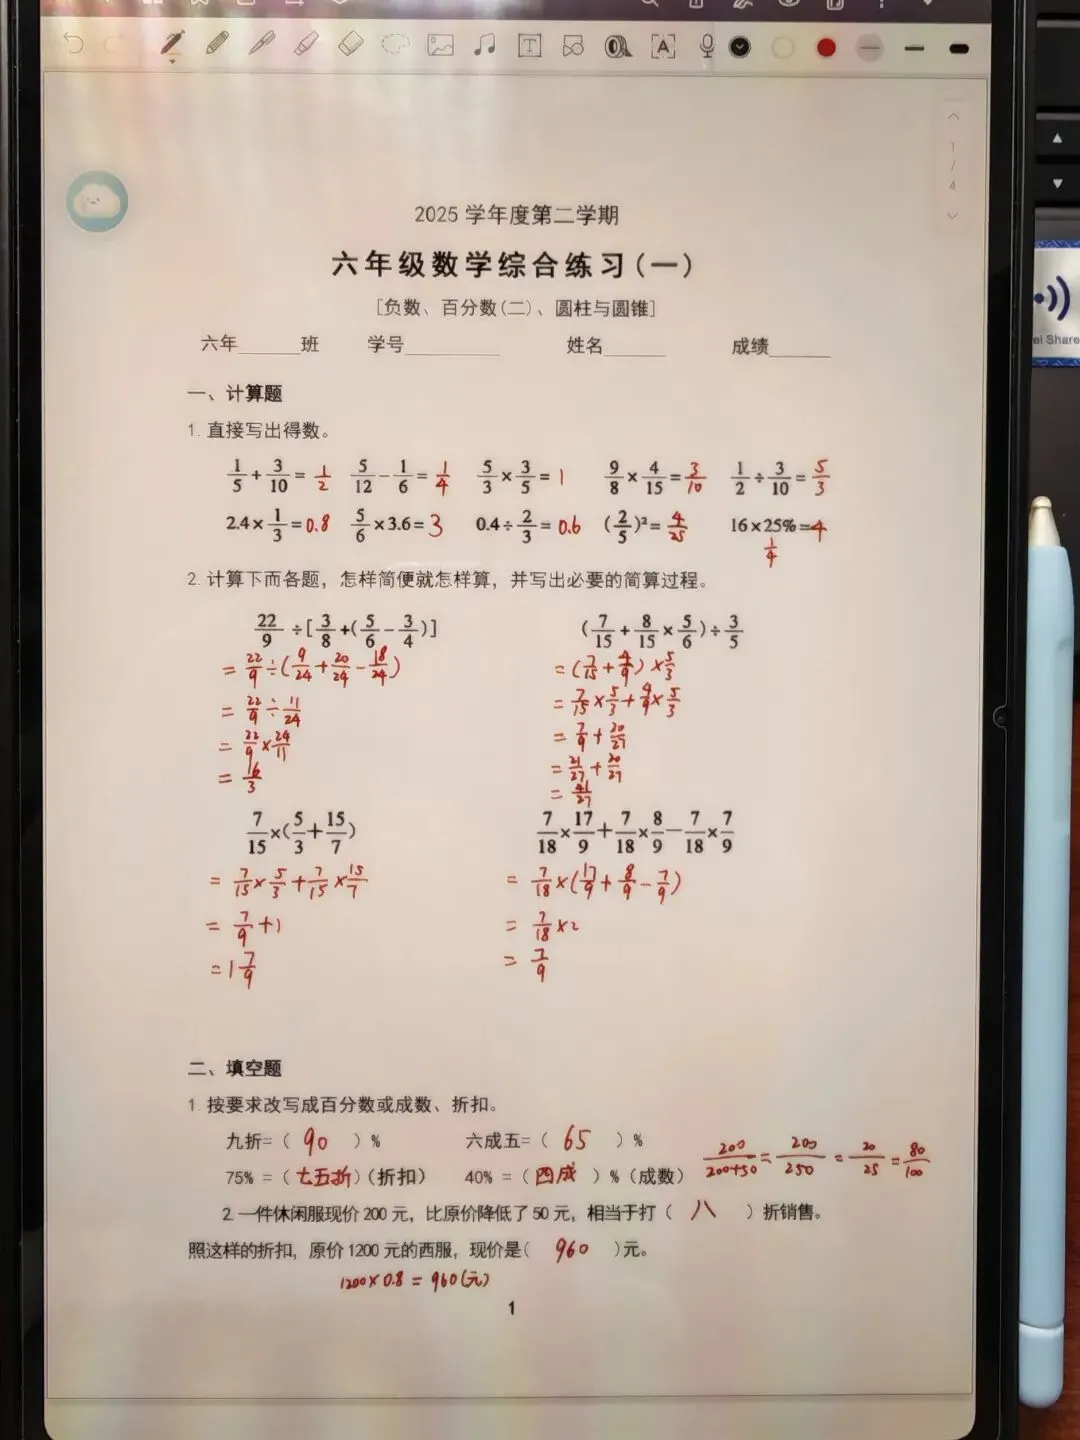 1
/
4
2025 学年度第二学期
六年级数学综合练习(一)
[负数、百分数(二)、圆柱与圆锥]
六年______班 学号_________ 姓名______ 成绩______
一、计算题
1. 直接写出得数。
1/5 + 3/10 = 1/2 5/12 - 1/6 = 1/4 5/3 × 3/5 = 1 9/8 × 4/15 = 3/10 1/2 ÷ 3/10 = 5/3
2.4 × 1/3 = 0.8 5/6 × 3.6 = 3 0.4 ÷ 2/3 = 0.6 (2/5)² = 4/25 16 × 25% = 4
1/4
2. 计算下而各题，怎样简便就怎样算，并写出必要的简算过程。
22/9 ÷ [3/8 + (5/6 - 3/4)] (7/15 + 8/15 × 5/6) ÷ 3/5
= 22/9 ÷ (9/24 + 20/24 - 18/24) = (7/15 + 4/9) × 5/3
= 22/9 ÷ 11/24 = 7/15 × 5/3 + 4/9 × 5/3
= 22/9 × 24/11 = 7/9 + 20/27
= 16/3 = 21/27 + 20/27
= 41/27
7/15 × (5/3 + 15/7) 7/18 × 17/9 + 7/18 × 8/9 − 7/18 × 7/9
= 7/15 × 5/3 + 7/15 × 15/7 = 7/18 × (17/9 + 8/9 - 7/9)
= 7/9 + 1 = 7/18 × 2
= 1 7/9 = 7/9
二、填空题
1. 按要求改写成百分数或成数、折扣。
九折=( 90 )% 六成五=( 65 )%
75% =(七五折)(折扣) 40% =(四成 )%(成数) 200/200+50 = 200/250 = 20/25 = 80/100
2. 一件休闲服现价 200 元，比原价降低了 50 元，相当于打( 八 )折销售。
照这样的折扣，原价 1200 元的西服，现价是( 960 )元。
1200 × 0.8 = 960(元)
1
ei Share